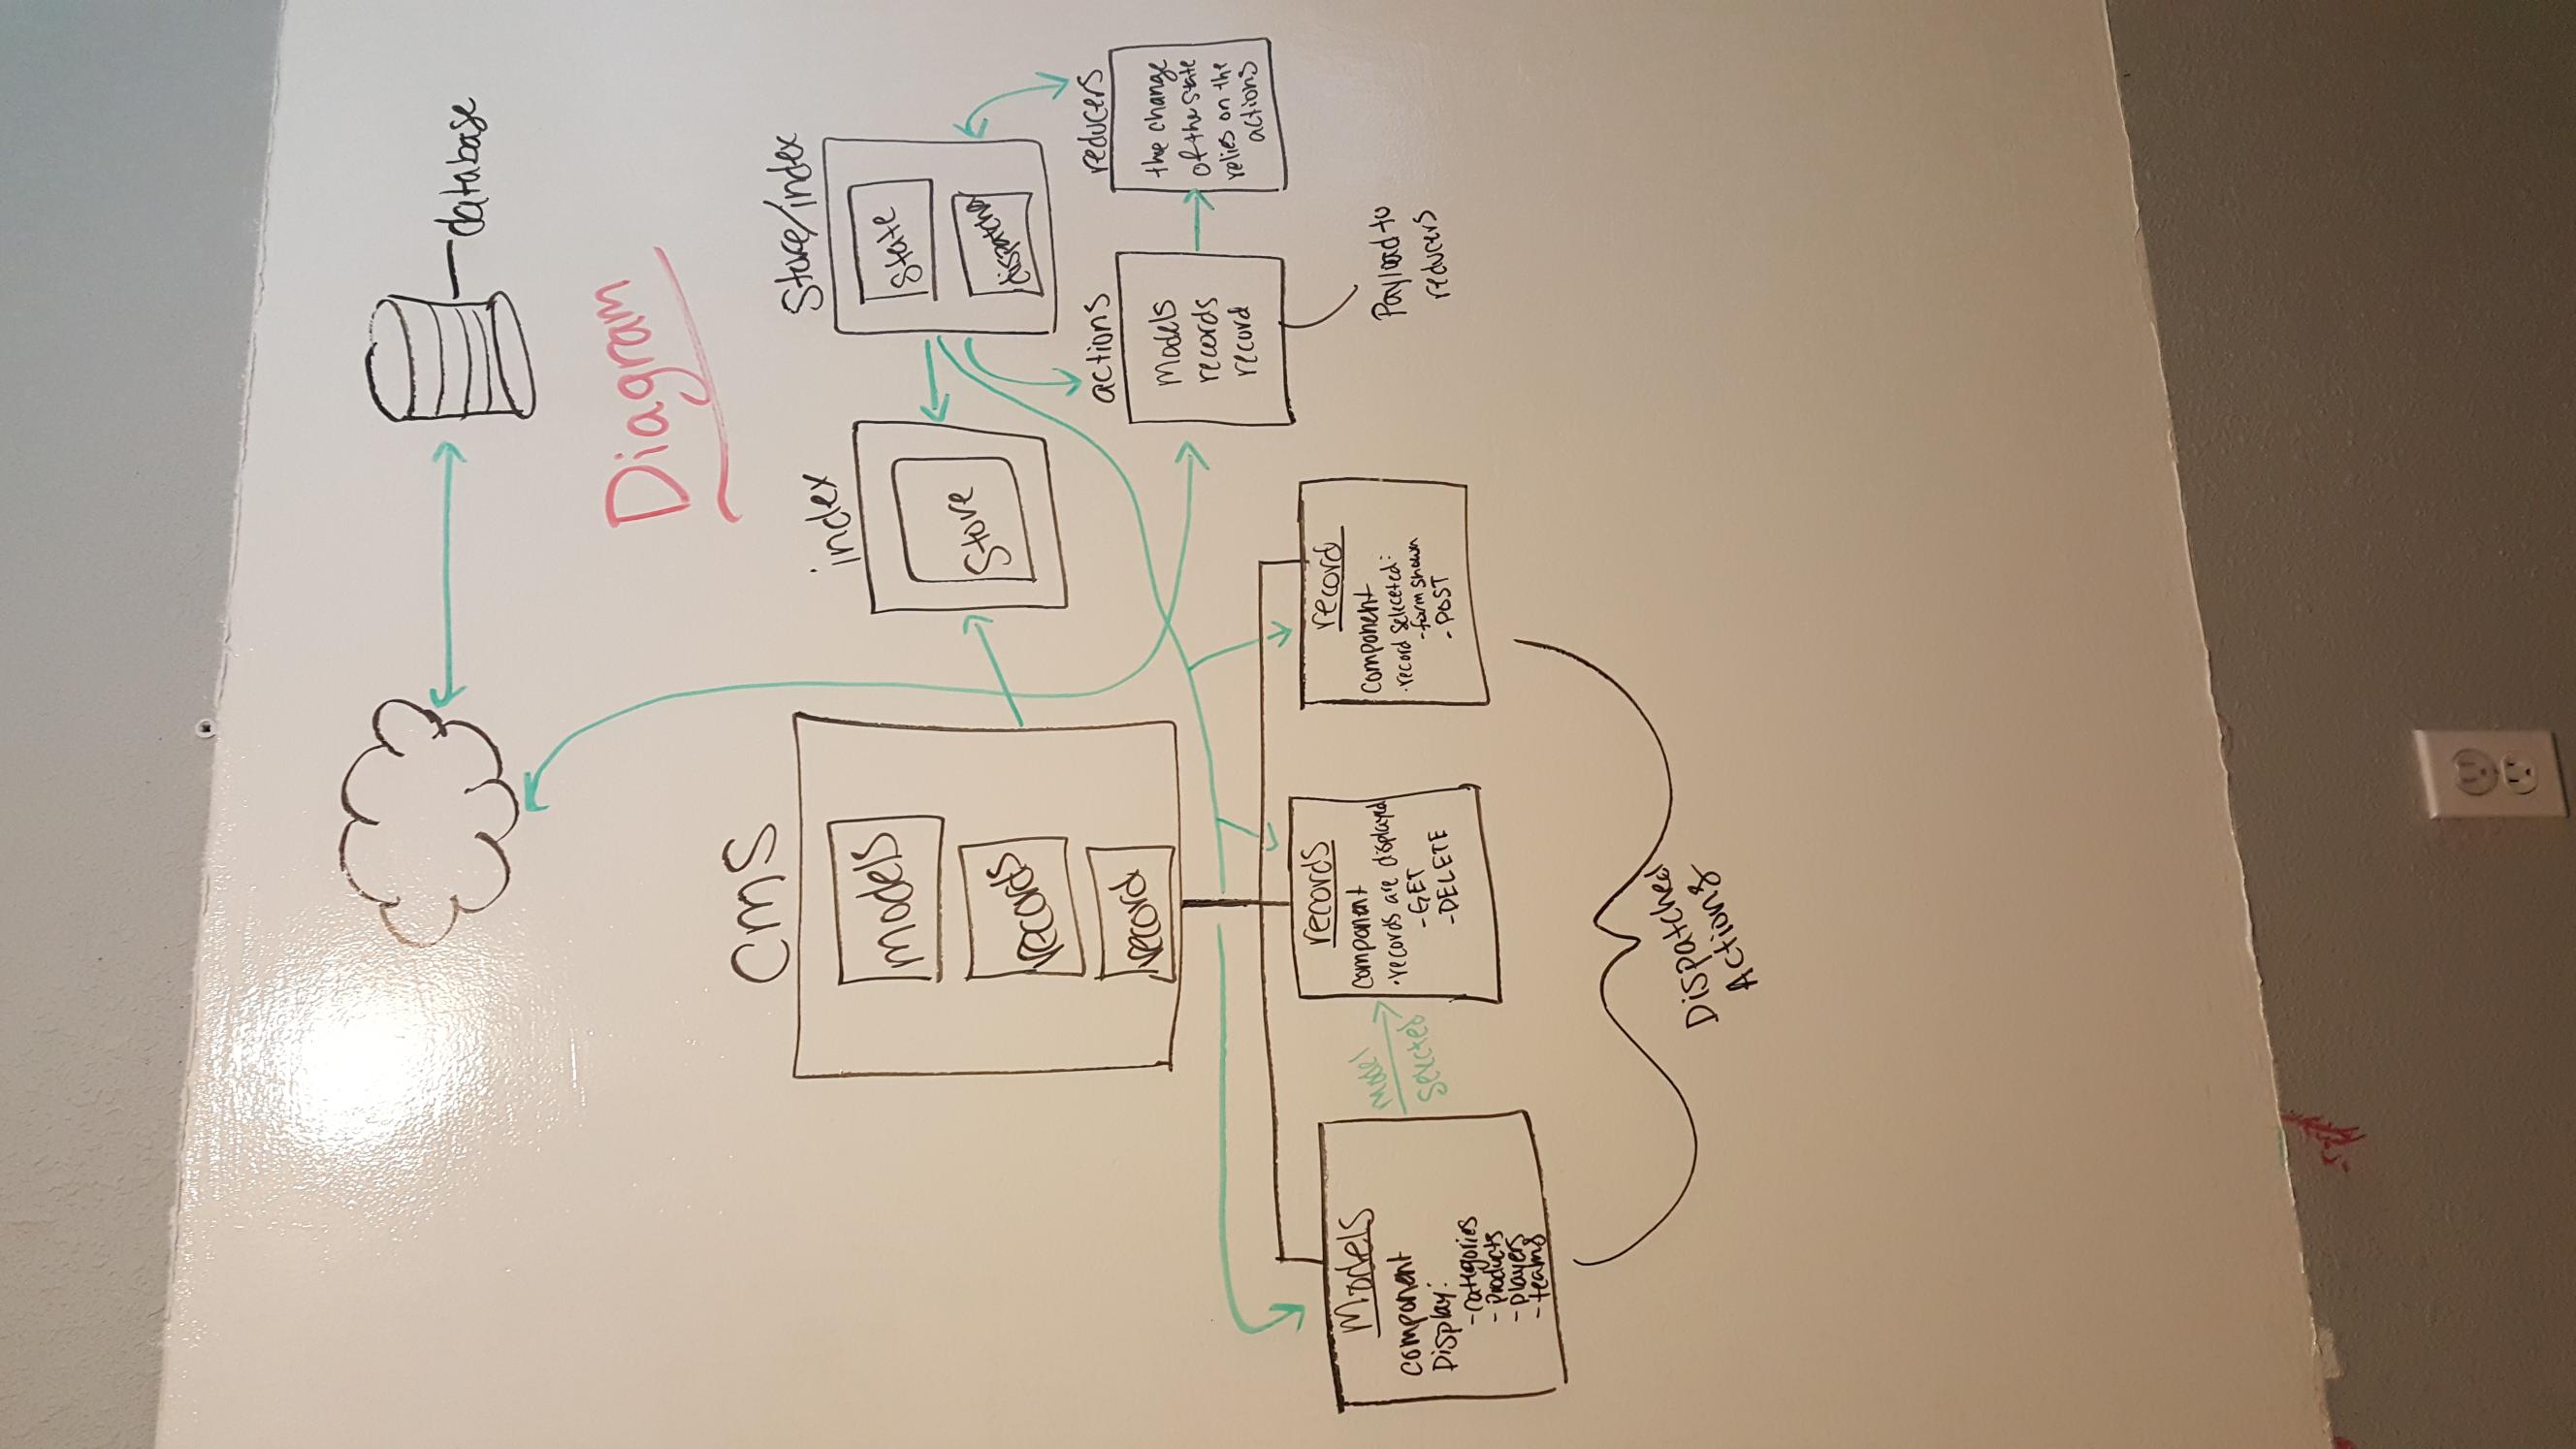 database
Diagram
CMS
models
records
record
index
Store
Store/index
State
actions
Models
records
record
reducers
the change
of the state
relies on the
actions
Payload to
reducers
Models
component
Display:
-categories
- products
- players
- teams
model
selected
records
component
·records are displayed
-GET
-DELETE
record
component
·record seleceted:
-form shown
- POST
Dispatched
Actions